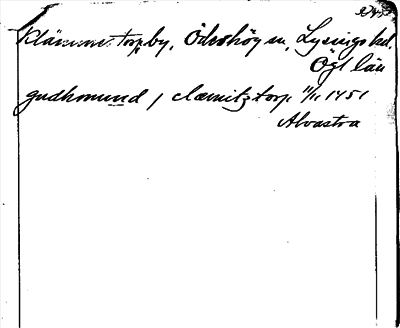 Klämmestorp by, Ödeshög sn, Lysings hd,
Ögl län
gudhmund j clæmitztorp 11/11 1451
Alvastra